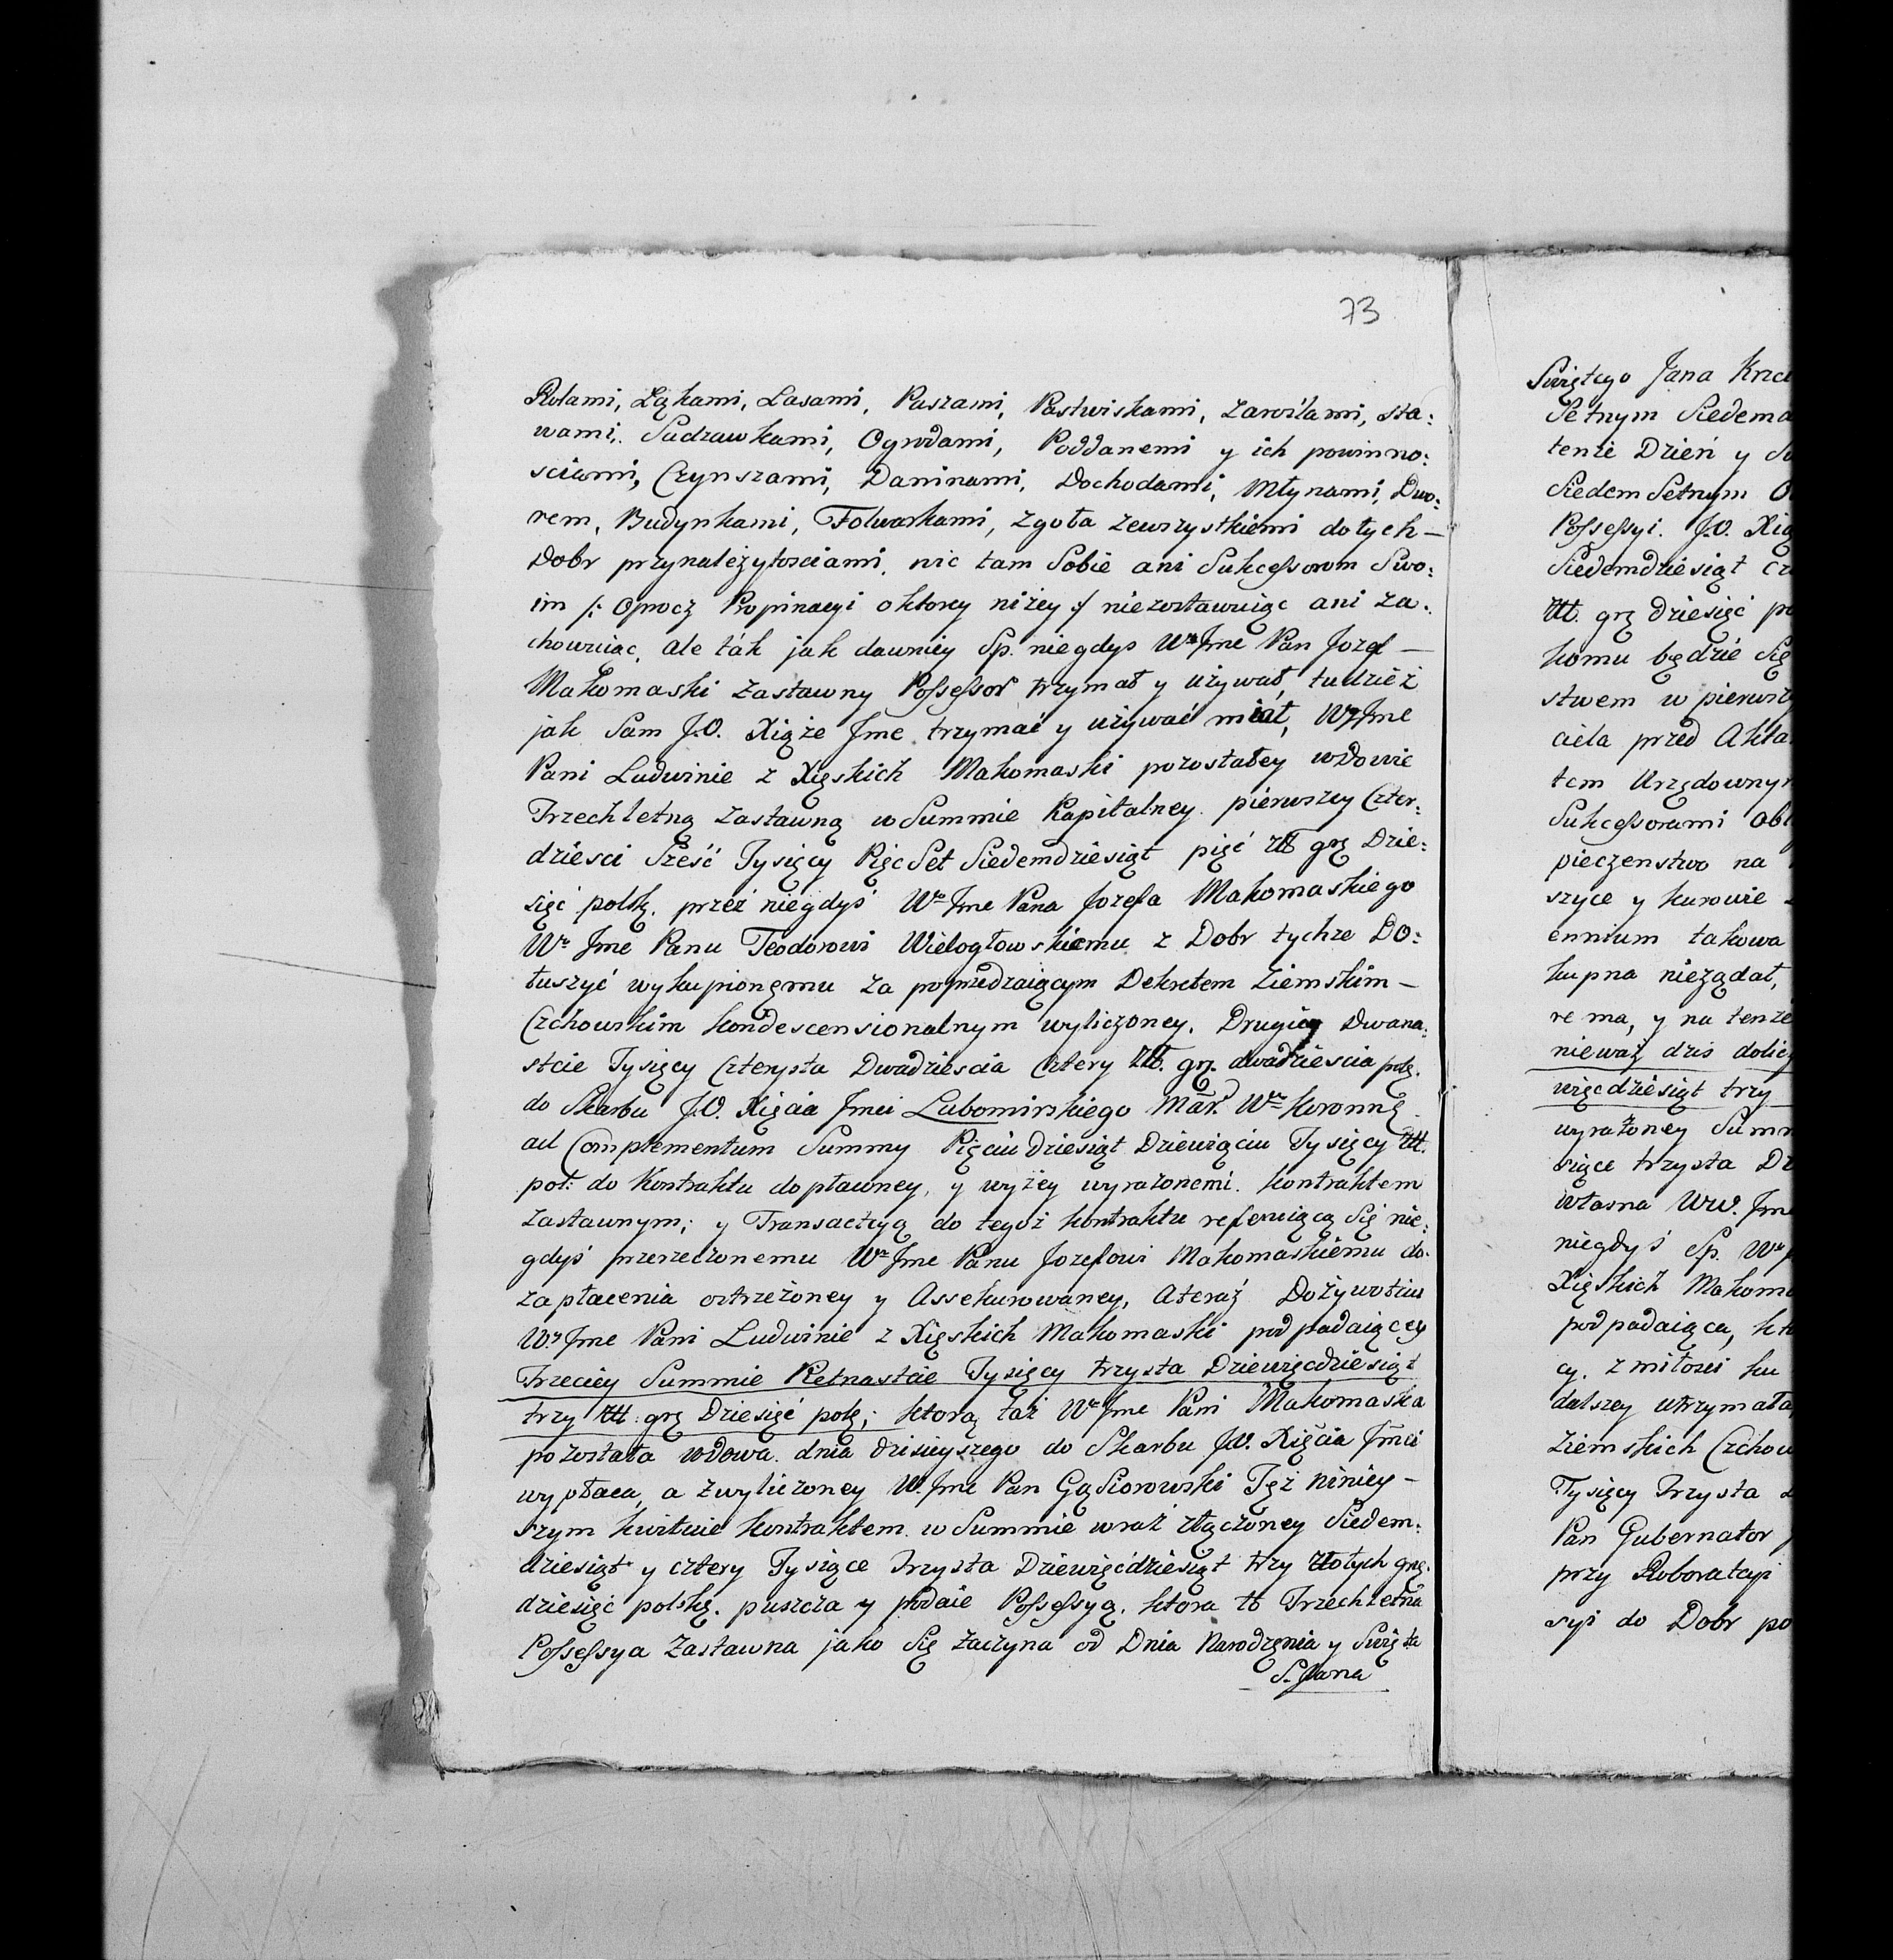 73
Rolami, Łąkami, Lasami, Paszami, Pastwiskami, Zaroslami, sta:
wami, Sadzawkami, Ogrodami, Poddanemi y ich powinno:
sciami, Czynszami, Daninami, Dochodami, Młynami, Dwo:
rem, Budynkami, Folwarkami, zgoła zewszystkiemi do tych —
Dobr przynależytosciami, nic tam Sobie ani Sukcessorom Swo:
im /: oprocz Propinacyi o ktorey niżey :/ niezostawuiąc ani za:
chowuiąc, ale ták jak dawniey Sp. niegdys Wny Jme Pan Jozef —
Makomaski zastawny Possessor trzymał y używał, tudzież
jak Sam J.O. Xiąże Jme trzymać y używać miał, Wy Jme
Pani Ludwinie z Xięskich Makomaski pozostałey wdowie
Trzechletnę zastawną w Summie Kapitalney pierwszey Czter:
dziesci Sześć Tysięcy Pięc Set Siedemdziesiąt pięć Złł grz Dzie:
sięć polsk. przez niegdyś Wo Jme Pana Jozefa Makomaskiego
Wu Jme Panu Teodorowi Wielogłowskiemu z Dobr tychze Do:
łuszyć wykupionemu za poprzedzaiącym Dekretem Ziemskim —
Czchowskim kondescensionalnym wyliczoney, Drugiey Dwana:
stcie Tysięcy Czterysta Dwadziescia Cztery Złł. grz. dwadziescia polz.
do Skarbu J.O. Xięcia Jmci Lubomirskiego Mar. Wo Koronne
ad Complementum Summy Pięciudziesiąt Dziewiąciu Tysięcy Złł.
pol: do Kontraktu dopławney, y wyżey wyrażonemi Kontraktem
zastawnym, y Transactcyą do tegoż kontraktu referuiącą się nie:
gdyś przerzeczonemu Wu Jme Panu Jozefowi Makomaskiemu do
zapłacenia ostrzeżoney y Assekurowaney, ateraz Dożywotciu
Wy Jme Pani Ludwinie z Xięskich Makomaski podpadaiącey
Trzeciey Summie Pietnastcie Tysięcy trzysta Dziewięcdziesiąt
trzy Złł: grz Dziesięć polz; ktorą taż Wa Jme Pani Makomaska
pozostała wdowa dnia dzisieyszego do Skarbu J.O. Xięcia Jmci
wypłaca, a zwyliczoney W. Jme Pan Gąsiorowski Też niniey —
szym kwituie kontraktem w Summie wraz złączoney Siedem:
dziesiąt y cztery Tysiące trzysta Dziewięćdziesiąt trzy złotych grz.
dziesięć polskę. puszcza y podaie Possessyą, ktora to Trzechletna
Possessya Zastawna jako się zaczyna od Dnia Narodzenia y Swięta
S. Jana
Swiętego Jana Krzci
Setnym Siedema
tenże Dzień y
Siedem Setnym
Possessyi. J.O. Xią
Siedemdziesiąt
Złł. grz dziesięć
komu będzie się
stwem w pierwszy
ciela przed Akta
tem Urzędownym
Sukcessorami
pieczenstwo na
szyce y kurowie
ennium takowa
kupna nieządał,
re ma, y na tenże
nieważ dzis
więcdziesiąt trzy
wyrażoney Summ
siące trzysta
własna WW. Jme
niegdyś Sp. Wu
Xięskich Makoma
podpadaiąca,
cy. z miłosci ku
dalszey utrzymała
Ziemskich Czchow
Tysięcy Trzysta
Pan Gubernator
przy Roboratcyi
syi do Dobr po